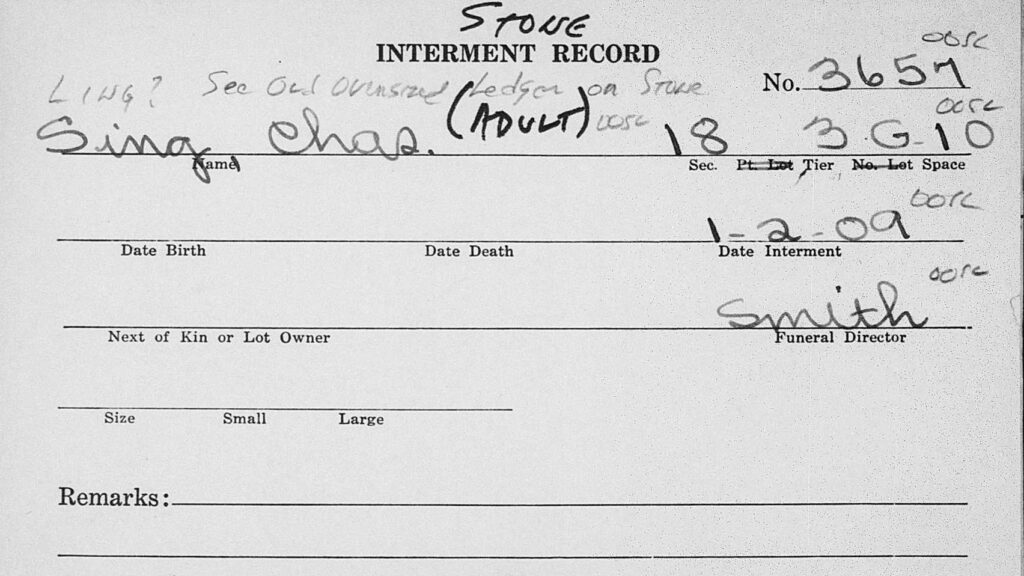 STONE
INTERMENT RECORD
OOSL
LING? See Old Oversized Ledger on Stone
No. 3657
OOSL
Sing Chas. (ADULT) OOSL 18 3 G-10
Name Sec. Pt. Lot Tier No. Lot Space
OOSL
1-2-09
Date Birth Date Death Date Interment
OOSL
Smith
Next of Kin or Lot Owner Funeral Director
Size Small Large
Remarks: